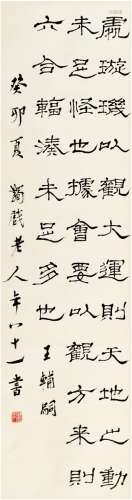 處璇璣以觀大運則天地之動
未足怪也據會要以觀方來則
六合輻湊未足多也 王輔嗣
癸卯夏蠲戲老人年八十一書